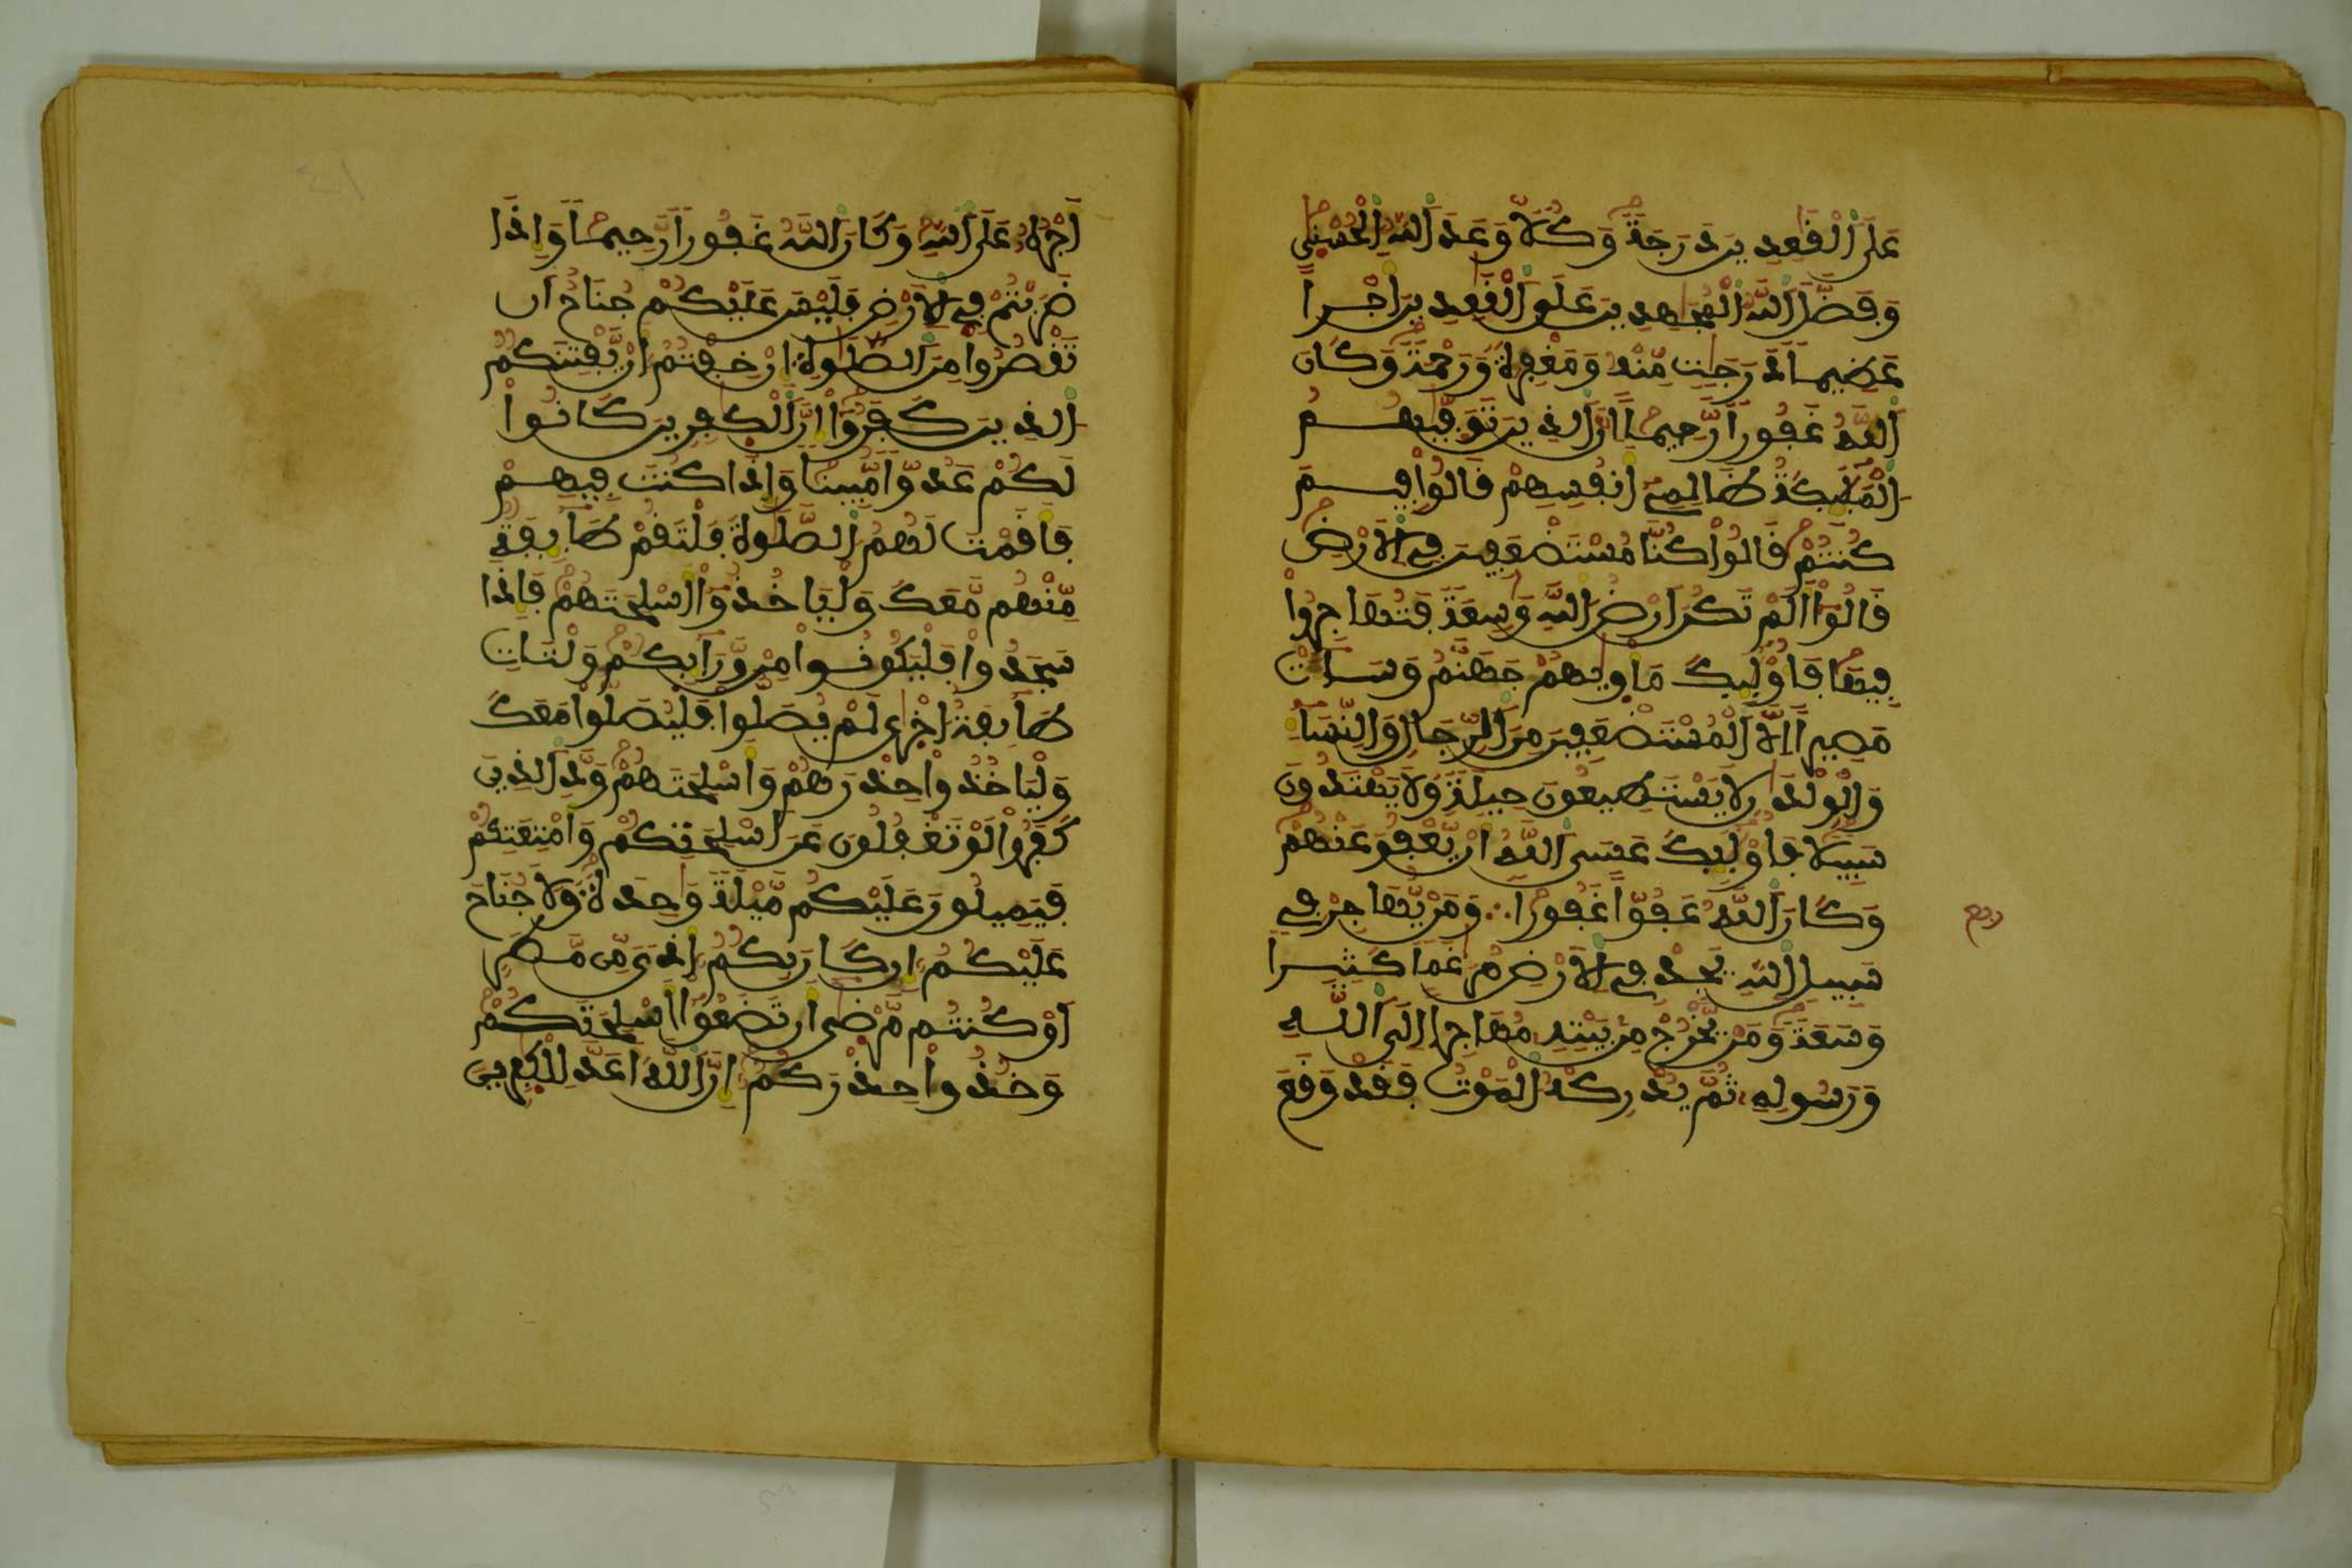 عَلَى اَلْقَٰعِدِينَ دَرَجَةً وَكُلّاً وَعَدَ اَللَّهُ اُلْحُسْنٰى
وَفَضَّلَ اَللَّهُ اُلْمُجَٰهِدِينَ عَلَى اَلْقَٰعِدِينَ أَجْراً
عَظِيماً دَرَجَٰتٍ مِّنْهُ وَمَغْفِرَةً وَرَحْمَةً وَكَانَ
اَللَّهُ غَفُوراً رَّحِيماً اِنَّ اَلذِينَ تَوَفّٰيٰهُمُ
اُلْمَلَٰٓئِكَةُ ظَالِمِےٓ أَنفُسِهِمْ قَالُواْ فِيمَ
كُنتُمْ قَالُواْ كُنَّا مُسْتَضْعَفِينَ فِے اِلَارْضِ
قَالُوٓاْ أَلَمْ تَكُنَ اَرْضُ اُللَّهِ وَٰسِعَةً فَتُهَاجِرُواْ
فِيهَا فَأُوْلَٰٓئِكَ مَأْوٰيٰهُمْ جَهَنَّمُ وَسَآءَتْ
مَصِيراً اِلَّا اَلْمُسْتَضْعَفِينَ مِنَ اَلرِّجَالِ وَالنِّسَآءِ
وَالْوِلْدَٰنِ لَا يَسْتَطِيعُونَ حِيلَةً وَلَا يَهْتَدُونَ
سَبِيلاً فَأُوْلَٰٓئِكَ عَسَى اَللَّهُ أَنْ يَّعْفُوَ عَنْهُمْ
وَكَانَ اَللَّهُ عَفُوّاً غَفُوراً ∴ وَمَنْ يُّهَاجِرْ فِے
سَبِيلِ اِللَّهِ يَجِدْ فِے اِلَارْضِ مُرَٰغَماً كَثِيراً
وَسَعَةً وَمَنْ يَّخْرُجْ مِنۢ بَيْتِهِ مُهَاجِراً اِلَى اَللَّهِ
وَرَسُولِهِ ثُمَّ يُدْرِكْهُ اُلْمَوْتُ فَقَدْ وَقَعَ
أَجْرُهُ عَلَى اَللَّهِ وَكَانَ اَللَّهُ غَفُوراً رَّحِيماً وَإِذَا
ضَرَبْتُمْ فِے اِلَارْضِ فَلَيْسَ عَلَيْكُمْ جُنَاحٌ اَن
تَقْصُرُواْ مِنَ اَلصَّلَوٰةِ إِنْ خِفْتُمُ أَنْ يَّفْتِنَكُمُ
اُلذِينَ كَفَرُوٓاْ إِنَّ اَلْكَٰفِرِينَ كَانُواْ
لَكُمْ عَدُوّاً مُّبِيناً وَإِذَا كُنتَ فِيهِمْ
فَأَقَمْتَ لَهُمُ اُلصَّلَوٰةَ فَلْتَقُمْ طَآئِفَةٌ
مِّنْهُم مَّعَكَ وَلْيَاخُذُوٓاْ أَسْلِحَتَهُمْ فَإِذَا
سَجَدُواْ فَلْيَكُونُواْ مِنْ وَّرَآئِكُمْ وَلْتَاتِ
طَآئِفَةٌ اُخْرٰى لَمْ يُصَلُّواْ فَلْيُصَلُّواْ مَعَكَ
وَلْيَاخُذُواْ حِذْرَهُمْ وَأَسْلِحَتَهُمْ وَدَّ اَلذِينَ
كَفَرُواْ لَوْ تَغْفُلُونَ عَنَ اَسْلِحَتِكُمْ وَأَمْتِعَتِكُمْ
فَيَمِيلُونَ عَلَيْكُم مَّيْلَةً وَٰحِدَةً وَلَا جُنَاحَ
عَلَيْكُمُ إِن كَانَ بِكُمُ أَذىً مِّن مَّطَرٍ
اَوْ كُنتُم مَّرْضٰىٓ أَن تَضَعُوٓاْ أَسْلِحَتَكُمْ
وَخُذُواْ حِذْرَكُمُ إِنَّ اَللَّهَ أَعَدَّ لِلْكَٰفِرِينَ